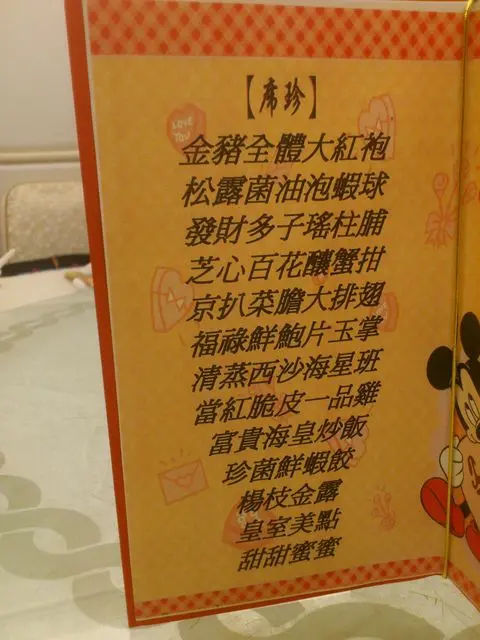 【席珍】
LOVE YOU
金豬全體大紅袍
松露菌油泡蝦球
發財多子瑤柱脯
芝心百花釀蟹拑
京扒菜膽大排翅
福祿鮮鮑片玉掌
清蒸西沙海星班
當紅脆皮一品雞
富貴海皇炒飯
珍菌鮮蝦餃
楊枝金露
皇室美點
甜甜蜜蜜